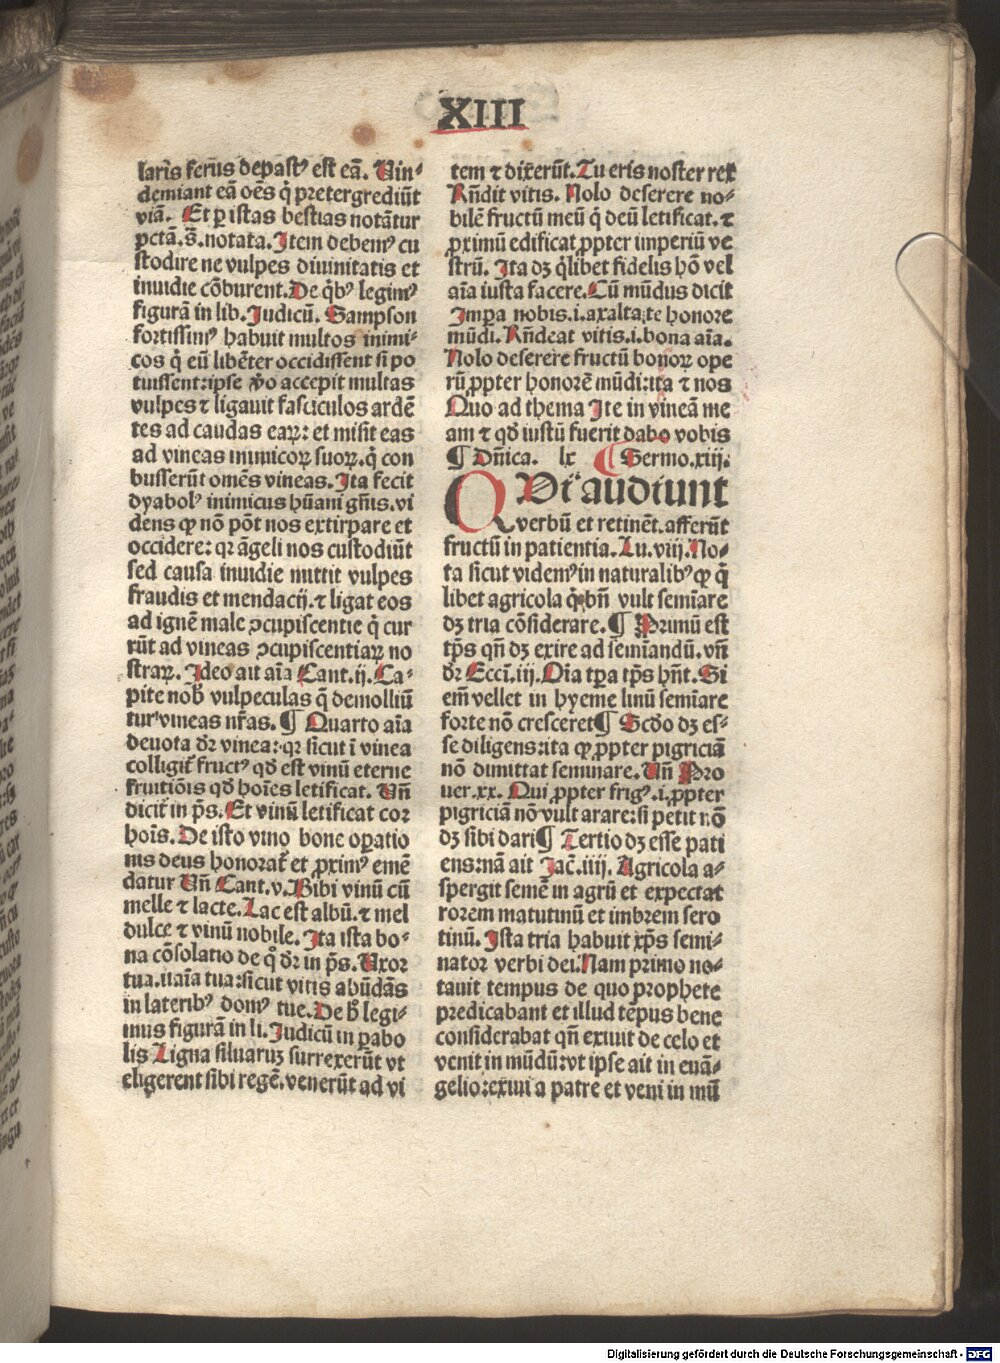 XIII
laris ferus depastꝰ est eā. Uin-
demiant eā oēs q̄ pretergrediūt
viā. Et ꝑ istas bestias notātur
pctā.s̄.notata. Item debemꝰ cu
stodire ne vulpes diuinitatis et
inuidie cōburent. De qͥbꝰ legimꝰ
figurā in lib. Judicū. Sampson
fortissimꝰ habuit multos inimi-
cos q̄ eū libēter occidissent si po
tuissent: ipse ꝟo accepit multas
vulpes ⁊ ligauit fasciculos ardē
tes ad caudas eaꝝ: et misit eas
ad vineas inimicoꝝ suoꝝ. q̄ con
busserūt omēs vineas. Ita fecit
dyabolꝰ inimicus hūani gn̄is. vi
dens ꝙ nō pōt nos extirpare et
occidere: qꝛ āgeli nos custodiūt
sed causa inuidie mittit vulpes
fraudis et mendacij. ⁊ ligat eos
ad ignē male ꝯcupiscentie q̄ cur
rūt ad vineas ꝯcupiscentiaꝝ no
straꝝ. Ideo ait aīa Cant. ij. Ca-
pite nob̄ vulpeculas q̄ demolliū
tur vineas nr̄as. ¶ Quarto aīa
deuota dr̄ vinea: qꝛ sicut ī vinea
colligit̄ fructꝰ qd̄ est vinū eterne
fruitiōis qd̄ hoīes letificat. Un̄
dicit̄ in ps̄. Et vinū letificat cor
hoīs. De isto vino bone oꝑatio
nis deus honorat̄ et ꝓximꝰ emē
datur Un̄ Cant. v. Bibi vinū cū
melle ⁊ lacte. Lac est albū. ⁊ mel
dulce ⁊ vinū nobile. Ita ista bo-
na cōsolatio de q̄ dr̄ in ps̄. Uxor
tua.i.aīa tua: sicut vitis abūdās
in lateribꝰ domꝰ tue. De h̄ legi-
mus figurā in li. Judicū in ꝑabo
lis Ligna siluaruꝫ surrexerūt vt
eligerent sibi regē. venerūt ad vi
tem ⁊ dixerūt. Tu eris noster rex
Rn̄dit vitis. Nolo deserere no-
bilē fructū meū q̄ deū letificat. ⁊
ꝓximū edificat ꝓpter imperiū ve
strū. Ita dꝫ qͥlibet fidelis hō vel
aīa iusta facere. Cū mūdus dicit
Impa nobis.i.axaltate honore
mūdi. Rn̄deat vitis.i.bona aīa.
Nolo deserere fructū bonoꝝ ope
rū ꝓpter honorē mūdi: ita ⁊ nos
Quo ad thema Ite in vineā me
am ⁊ qd̄ iustū fuerit dabo vobis
¶ Dn̄ica. lx ¶ Sermo.xiij.
QDi audiunt
verbū et retinēt. afferūt
fructū in patientia. Lu. viij. No-
ta sicut videmꝰ in naturalibꝰ ꝙ q̄
libet agricola qͥ bn̄ vult semīare
dꝫ tria cōsiderare. ¶ Primū est
tp̄s qn̄ dꝫ exire ad semīandū. vn̄
dr̄ Ecci. iij. Oīa tꝑa tp̄s hn̄t. Si
em̄ vellet in hyeme linū semīare
forte nō cresceret ¶ Scdo dꝫ es-
se diligens: ita ꝙ ꝓpter pigriciā
nō dimittat seminare. Un̄ Pro
uer. xx. Qui ꝓpter frigꝰ.i.ꝓpter
pigriciā nō vult arare: si petit nō
dꝫ sibi dari ¶ Tertio dꝫ esse pati
ens: nā ait Jac̄. iiij. Agricola a-
spergit semē in agrū et expectat
rorem matutinū et imbrem sero
tinū. Ista tria habuit xp̄s semi-
nator verbi dei. Nam primo no-
tauit tempus de quo prophete
predicabant et illud tēpus bene
considerabat qn̄ exiuit de celo et
venit in mūdū: vt ipse ait in euā-
gelio: exiui a patre et veni in mū
Digitalisierung gefördert durch die Deutsche Forschungsgemeinschaft - DFG